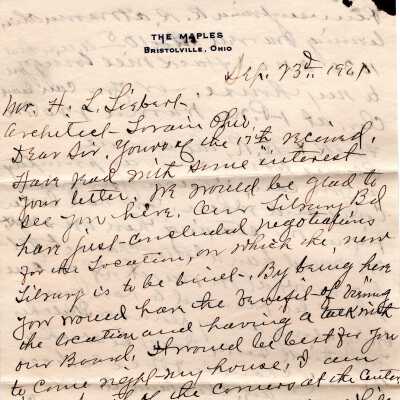 THE MAPLES
BRISTOLVILLE, OHIO
Sep. 23d 1921
Mr. H. L. Siebert-
Architect- Lorain Ohio,
Dear Sir. Yours of the 17th received,
Have read with some interest
your letter. We would be glad to
see you here. Our Library Bd
have just-concluded negotiations
for the Location, on which the new
Library is to be built-. By being here
you would have the benefit-of viewing
the location and having a talk with
our Board. It would be best for you
to come right-my house, I am
of the corners at the Center